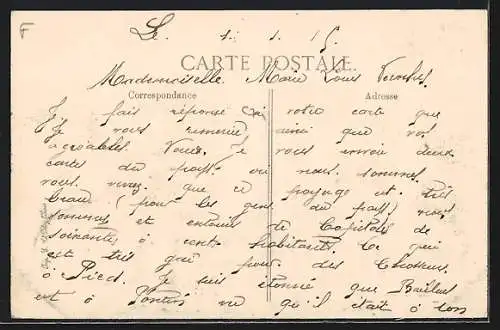 F
Le 4. 1. 15
CARTE POSTALE.
Mademoiselle Marie Louis
Correspondance Adresse
Je fais réponse à votre carte que
Je vous remercie ainsi que vos
agréables Voeux. Je vous envoie deux
cartes du pays ou nous sommes
vous verrez que ce paysage est très
beau (pour les gens du pays) nous
sommes et entouré de Capitales de
soixantes à cents habitants. Ce qui
est très que pour des Chasseurs
à Pied. Je suis étonné que
est à vu qu'il était à